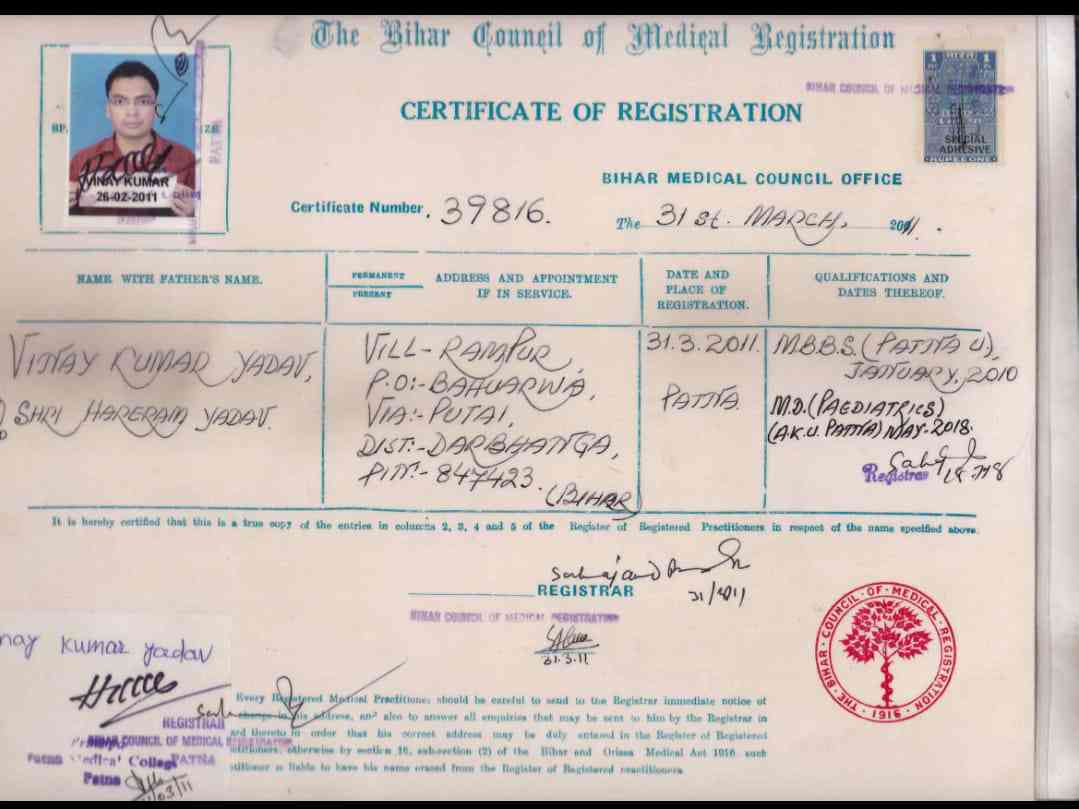 The Bihar Council of Medical Registration
BIHAR COUNCIL OF MEDICAL REGISTRATION
CERTIFICATE OF REGISTRATION
SPECIAL
ADHESIVE
RUPEE ONE
VINAY KUMAR
26-02-2011
PATNA
BIHAR MEDICAL COUNCIL OFFICE
Certificate Number. 39816.
The 31st. MARCH, 2011.
NAME WITH FATHER'S NAME.
PERMANENT
PRESENT
ADDRESS AND APPOINTMENT
IF IN SERVICE.
DATE AND
PLACE OF
REGISTRATION.
QUALIFICATIONS AND
DATES THEREOF.
VINAY KUMAR YADAV,
SHRI HARERAM YADAV.
VILL- RAMPUR,
P.O:- BAHUARWA,
VIA:- PUTAI,
DIST:- DARBHANGA,
PIN:- 847423.
(BIHAR)
31.3.2011.
PATNA.
M.B.B.S. (PATNA U),
JANUARY, 2010
M.D. (PAEDIATRICS)
(A.K.U. PATNA) MAY-2018.
Registrar
It is hereby certified that this is a true copy of the entries in columns 2, 3, 4 and 5 of the Register of Registered Practitioners in respect of the name specified above.
REGISTRAR
BIHAR COUNCIL OF MEDICAL REGISTRATION
31.3.11
THE BIHAR COUNCIL OF MEDICAL REGISTRATION
1916
nay Kumar Yadav
REGISTRAR
BIHAR COUNCIL OF MEDICAL REGISTRATION
PATNA
Patna Medical College
Patna
Every Registered Medical Practitioner should be careful to send to the Registrar immediate notice of
change in his address, and also to answer all enquiries that may be sent to him by the Registrar in
ard thereto in order that his correct address may be duly entered in the Register of Registered
titioners, otherwise by section 16, sub-section (2) of the Bihar and Orissa Medical Act 1916 such
titioner is liable to have his name erased from the Register of Registered practitioners